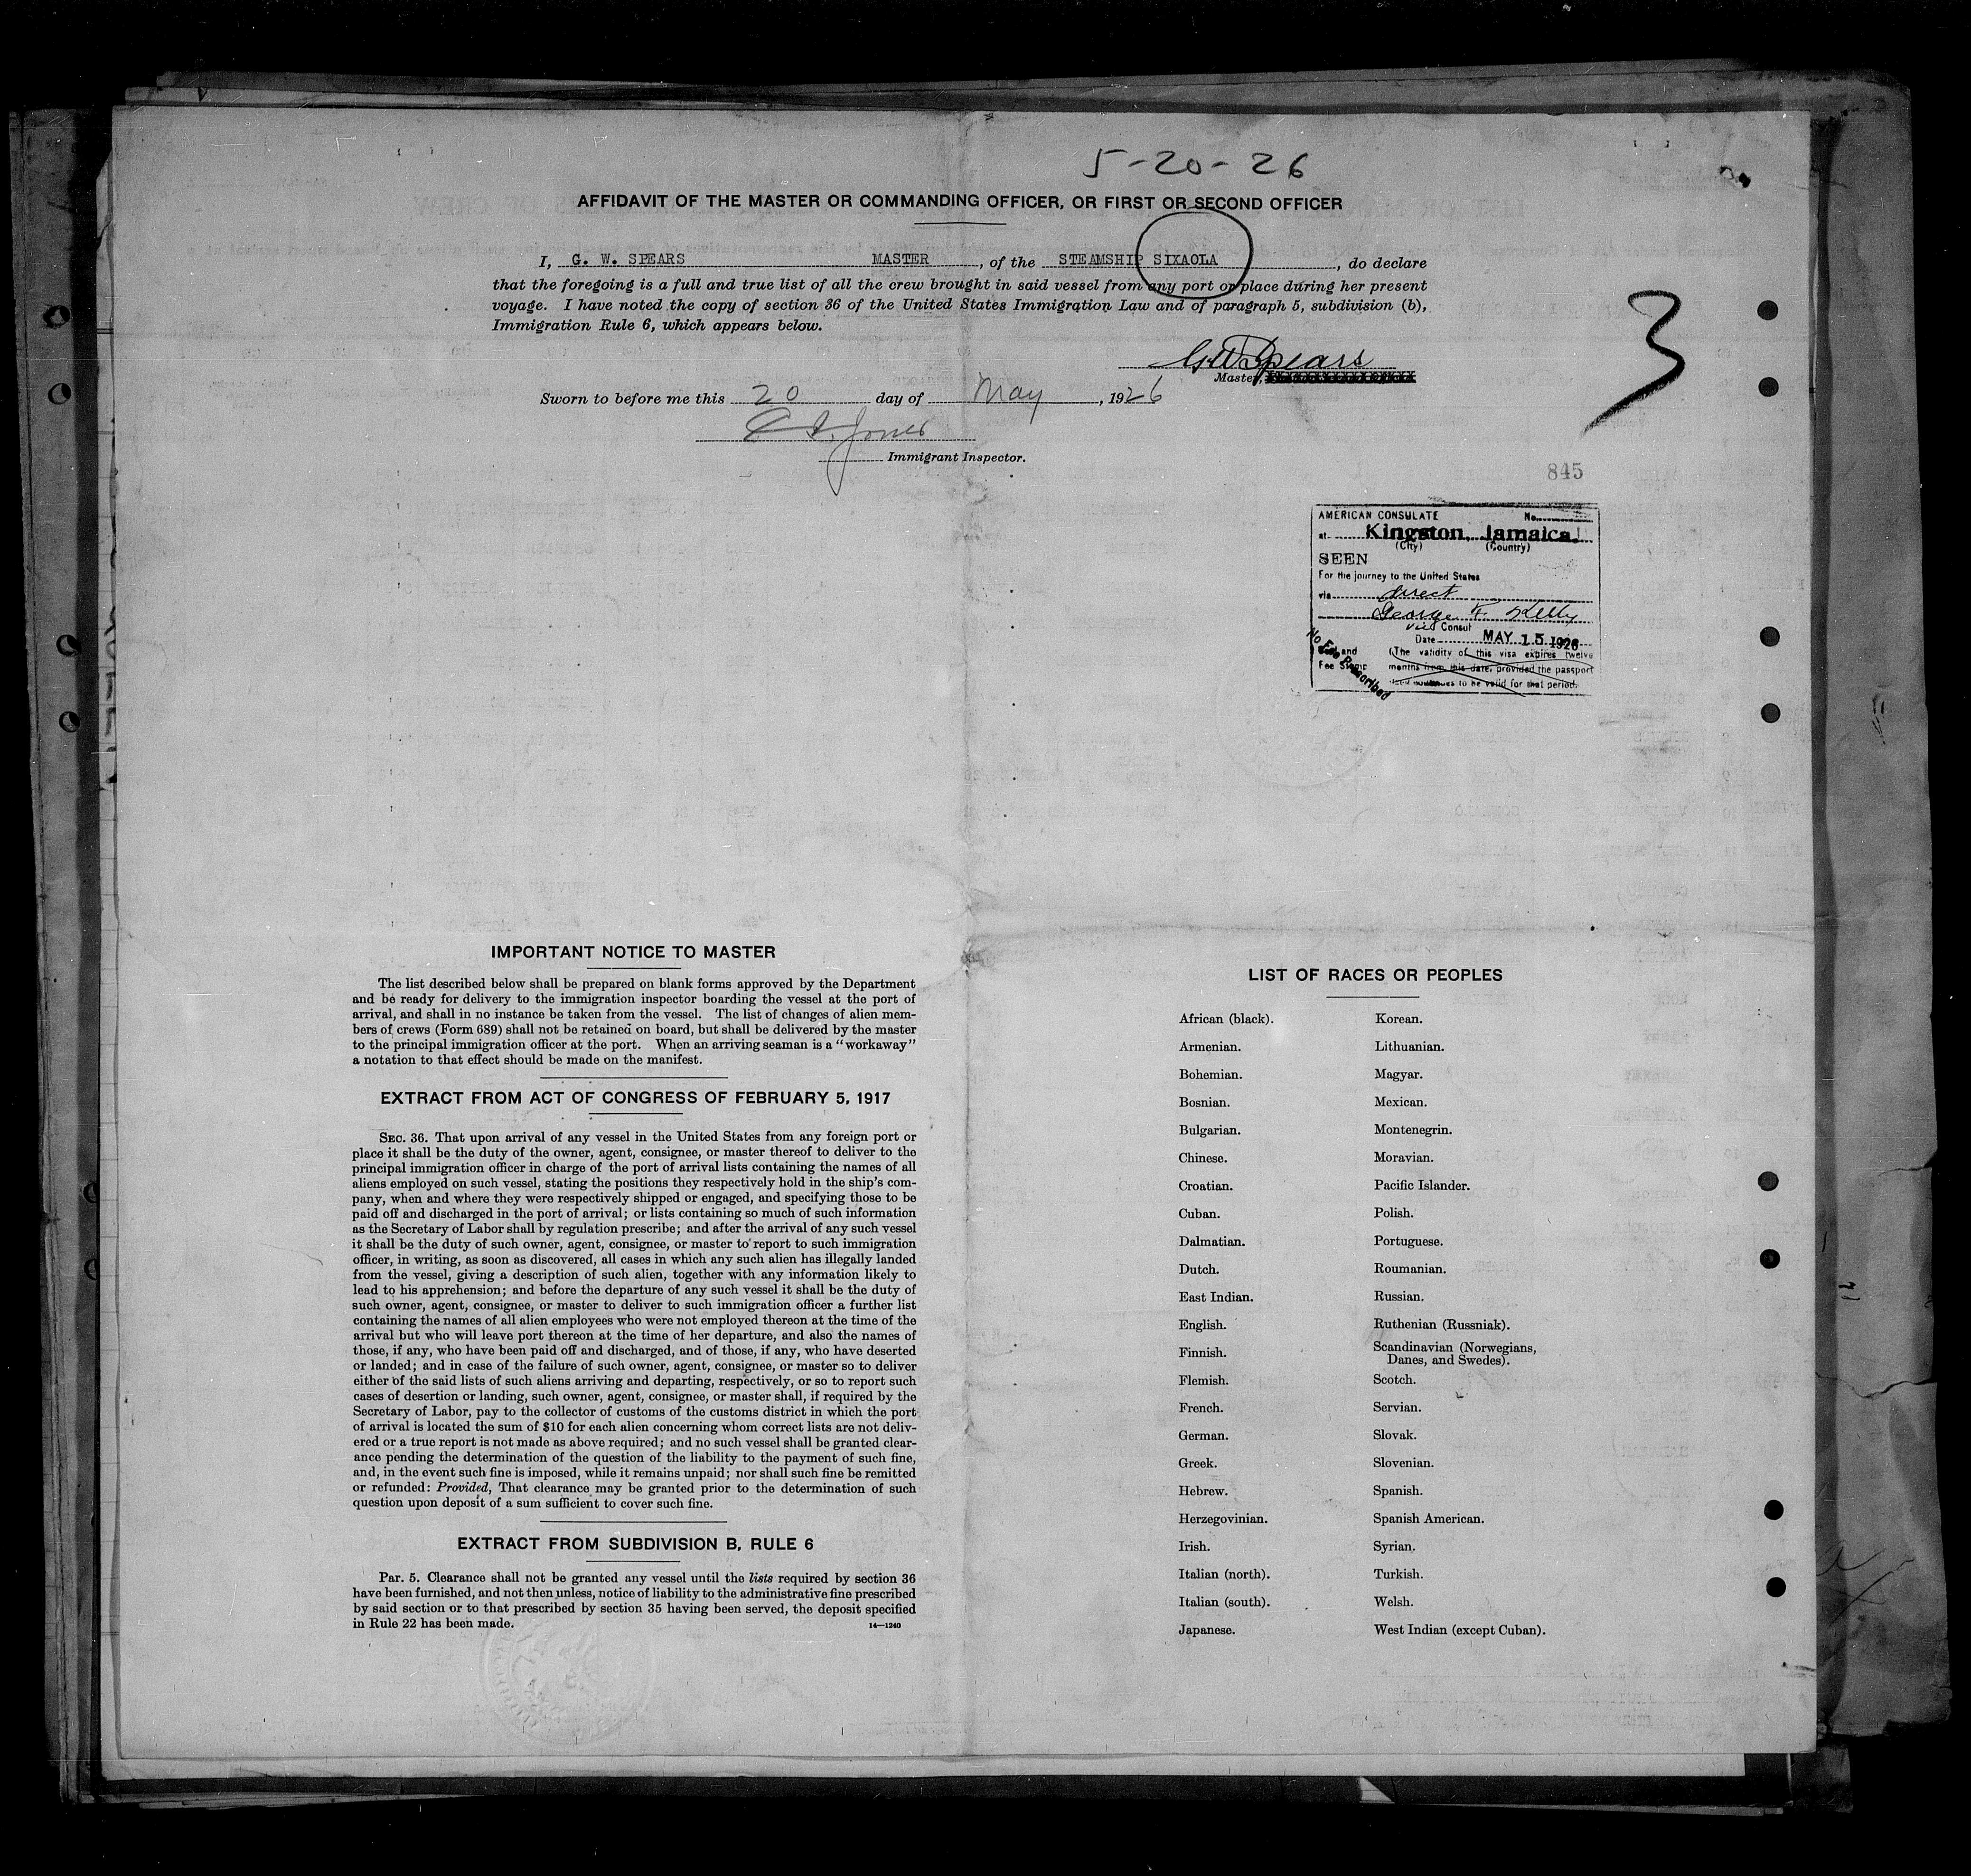 5-20-26
AFFIDAVIT OF THE MASTER OR COMMANDING OFFICER, OR FIRST OR SECOND OFFICER
I, G. W. SPEARS MASTER, of the STEAMSHIP SIXAOLA, do declare
that the foregoing is a full and true list of all the crew brought in said vessel from any port or place during her present
voyage. I have noted the copy of section 36 of the United States Immigration Law and of paragraph 5, subdivision (b),
Immigration Rule 6, which appears below.
G W Spears
Master,
3
Sworn to before me this 20 day of May, 1926
Jones
Immigrant Inspector.
845
AMERICAN CONSULATE No.
at Kingston, Jamaica.
(City) (Country)
SEEN
For the journey to the United States
via direct
George F. Kelly
Vice Consul
Date MAY 15 1926
No Fee Prescribed
Seal and
Fee Stamp
(The validity of this visa expires twelve
months from this date, provided the passport
continues to be valid for that period.
IMPORTANT NOTICE TO MASTER
The list described below shall be prepared on blank forms approved by the Department
and be ready for delivery to the immigration inspector boarding the vessel at the port of
arrival, and shall in no instance be taken from the vessel. The list of changes of alien mem-
bers of crews (Form 689) shall not be retained on board, but shall be delivered by the master
to the principal immigration officer at the port. When an arriving seaman is a "workaway"
a notation to that effect should be made on the manifest.
EXTRACT FROM ACT OF CONGRESS OF FEBRUARY 5, 1917
SEC. 36. That upon arrival of any vessel in the United States from any foreign port or
place it shall be the duty of the owner, agent, consignee, or master thereof to deliver to the
principal immigration officer in charge of the port of arrival lists containing the names of all
aliens employed on such vessel, stating the positions they respectively hold in the ship's com-
pany, when and where they were respectively shipped or engaged, and specifying those to be
paid off and discharged in the port of arrival; or lists containing so much of such information
as the Secretary of Labor shall by regulation prescribe; and after the arrival of any such vessel
it shall be the duty of such owner, agent, consignee, or master to report to such immigration
officer, in writing, as soon as discovered, all cases in which any such alien has illegally landed
from the vessel, giving a description of such alien, together with any information likely to
lead to his apprehension; and before the departure of any such vessel it shall be the duty of
such owner, agent, consignee, or master to deliver to such immigration officer a further list
containing the names of all alien employees who were not employed thereon at the time of the
arrival but who will leave port thereon at the time of her departure, and also the names of
those, if any, who have been paid off and discharged, and of those, if any, who have deserted
or landed; and in case of the failure of such owner, agent, consignee, or master so to deliver
either of the said lists of such aliens arriving and departing, respectively, or so to report such
cases of desertion or landing, such owner, agent, consignee, or master shall, if required by the
Secretary of Labor, pay to the collector of customs of the customs district in which the port
of arrival is located the sum of $10 for each alien concerning whom correct lists are not deliv-
ered or a true report is not made as above required; and no such vessel shall be granted clear-
ance pending the determination of the question of the liability to the payment of such fine,
and, in the event such fine is imposed, while it remains unpaid; nor shall such fine be remitted
or refunded: Provided, That clearance may be granted prior to the determination of such
question upon deposit of a sum sufficient to cover such fine.
EXTRACT FROM SUBDIVISION B, RULE 6
Par. 5. Clearance shall not be granted any vessel until the lists required by section 36
have been furnished, and not then unless, notice of liability to the administrative fine prescribed
by said section or to that prescribed by section 35 having been served, the deposit specified
in Rule 22 has been made.
14—1240
LIST OF RACES OR PEOPLES
African (black). Korean.
Armenian. Lithuanian.
Bohemian. Magyar.
Bosnian. Mexican.
Bulgarian. Montenegrin.
Chinese. Moravian.
Croatian. Pacific Islander.
Cuban. Polish.
Dalmatian. Portuguese.
Dutch. Roumanian.
East Indian. Russian.
English. Ruthenian (Russniak).
Finnish. Scandinavian (Norwegians,
Danes, and Swedes).
Flemish. Scotch.
French. Servian.
German. Slovak.
Greek. Slovenian.
Hebrew. Spanish.
Herzegovinian. Spanish American.
Irish. Syrian.
Italian (north). Turkish.
Italian (south). Welsh.
Japanese. West Indian (except Cuban).